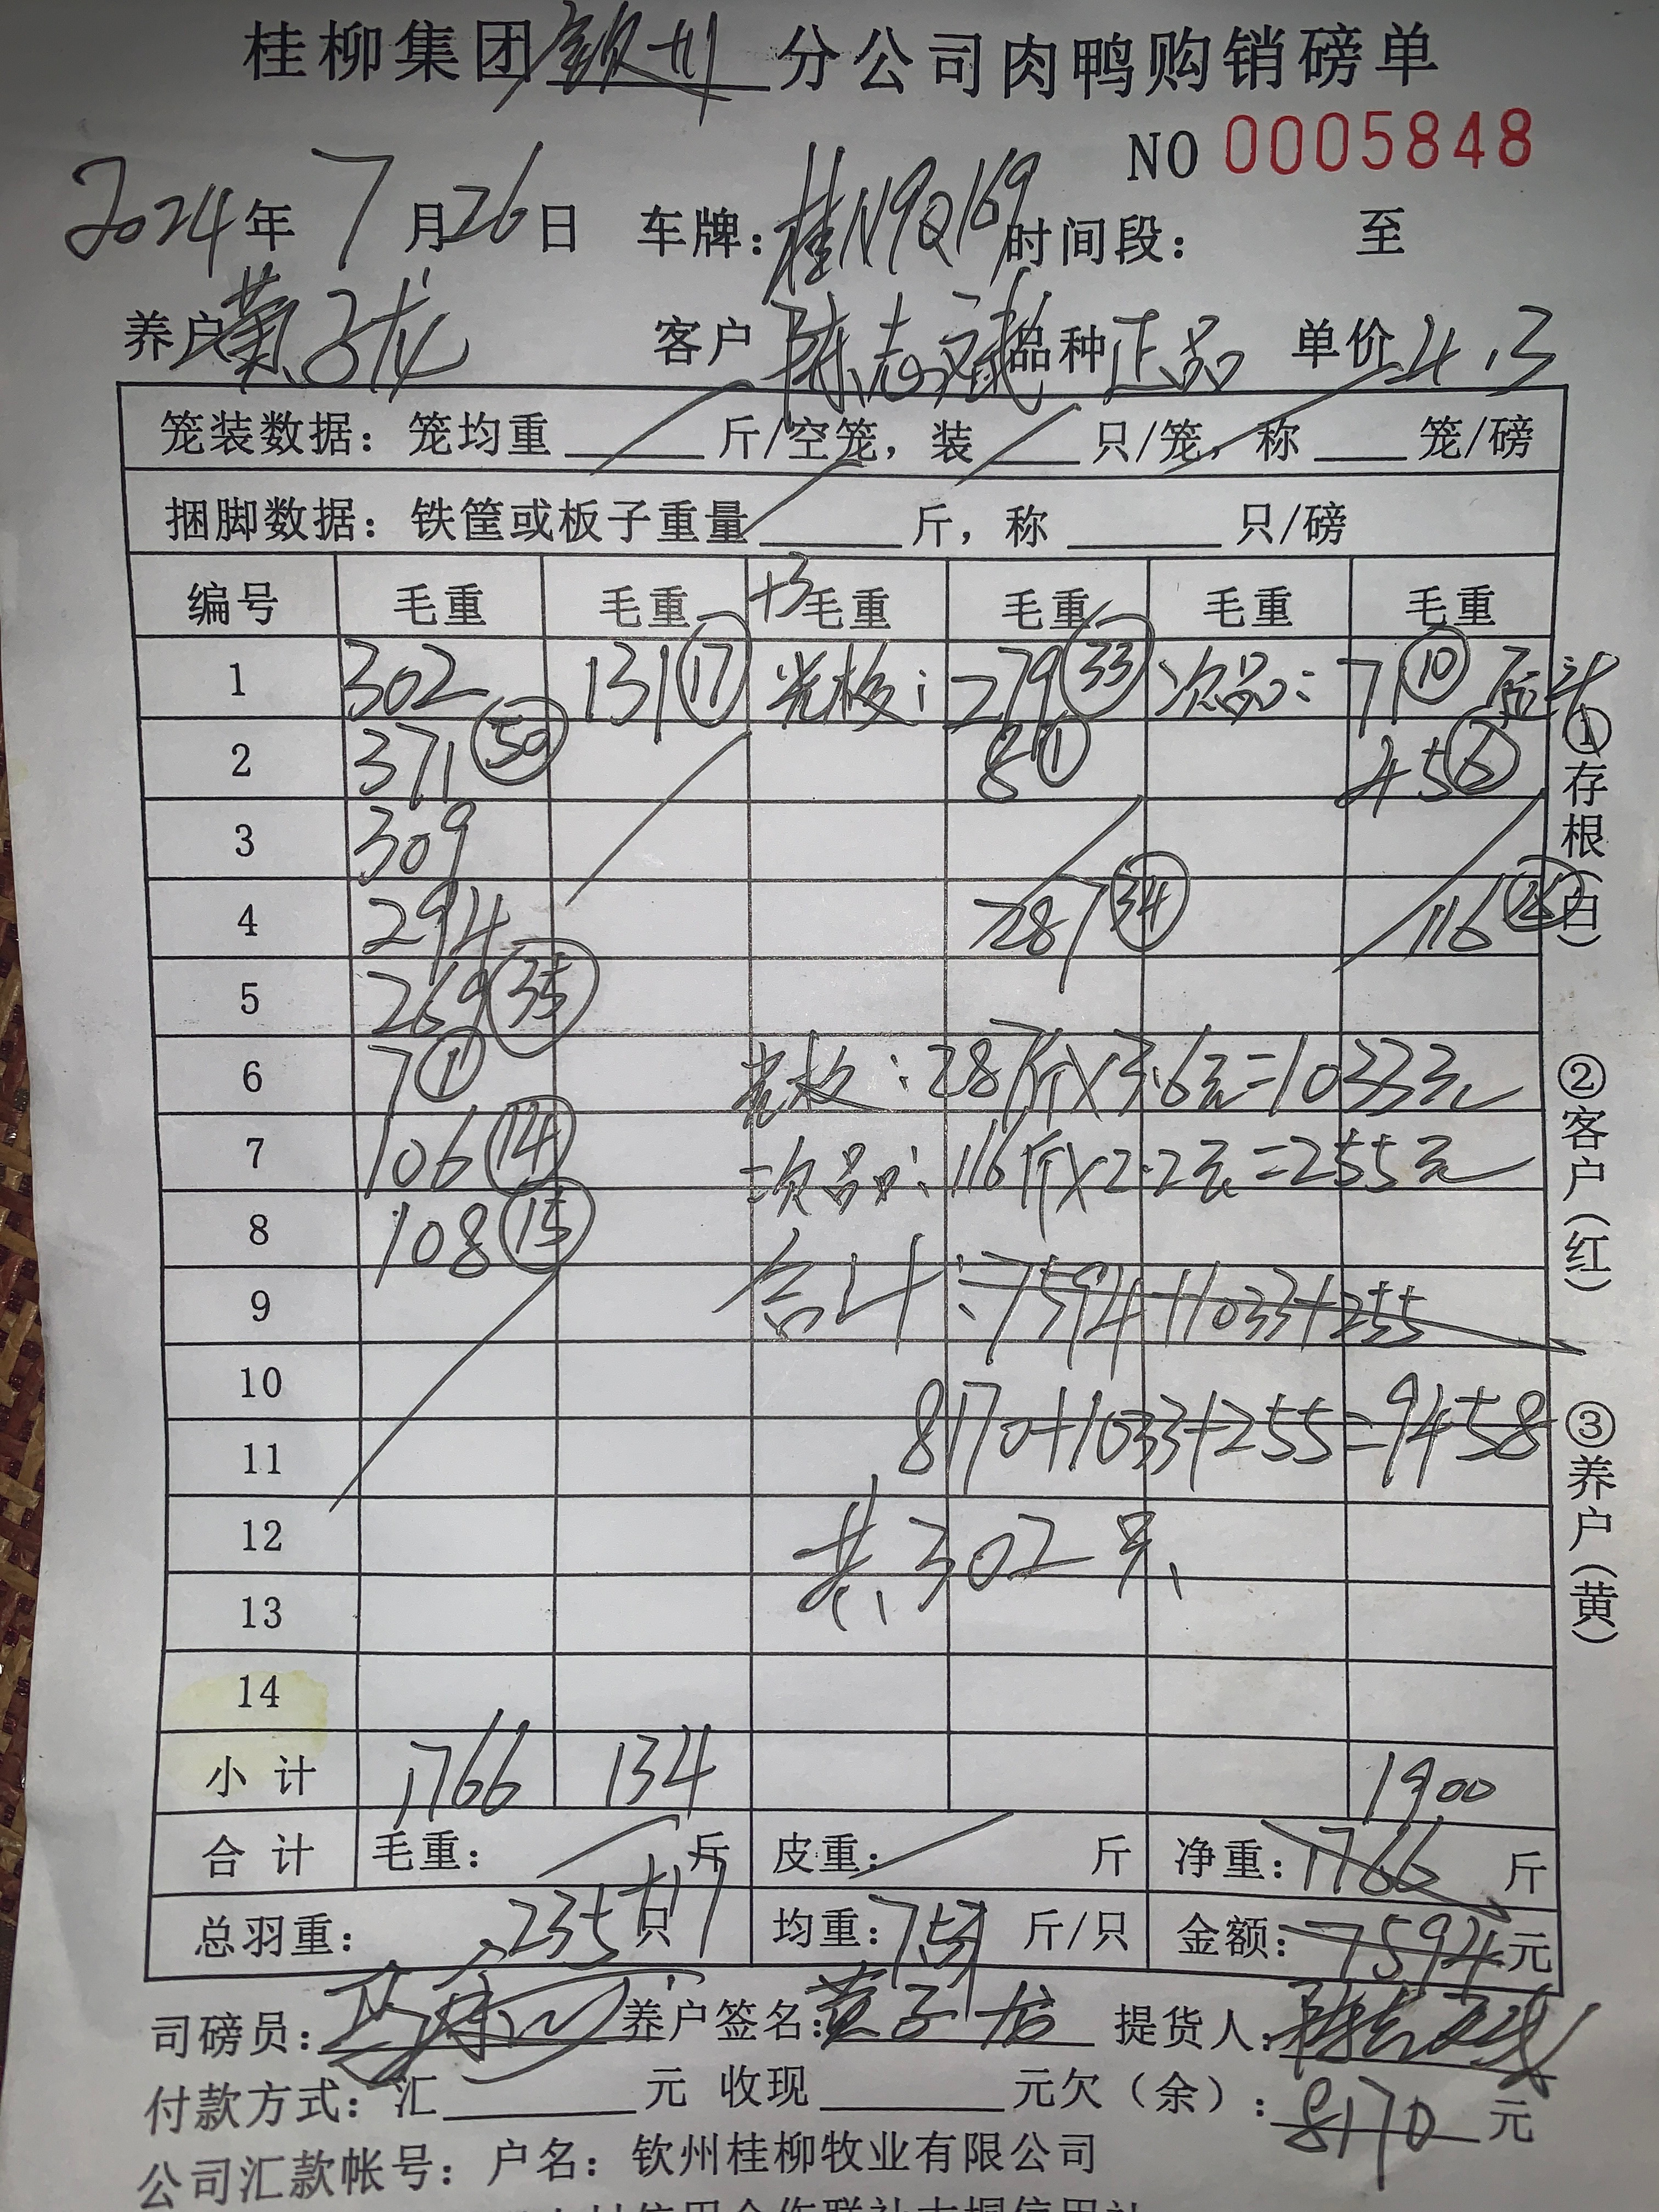 桂柳集团钦州分公司肉鸭购销磅单
NO 0005848
2024年7月26日 车牌：桂N9Q169 时间段： 至
养户黄子龙 客户 陈志斌 品种 正品 单价 4.3
笼装数据：笼均重 斤/空笼，装 只/笼，称 笼/磅
捆脚数据：铁筐或板子重量 斤，称 只/磅
编号 毛重 毛重 +3 毛重 毛重 毛重 毛重
1 302 131 ⑰ 光板： 279 ㉝ 次品： 71 ⑩
2 371 ㊿ 8 ① 45 ⑥
3 309
4 294 287 ㉞ 116
5 269 ㉟
6 7 ① 光板：287斤×3.6元=1033元
7 106 ⑭ 次品：116斤×2.2元=255元
8 108 ⑮
9 合计：7594+1033+255
10
11 8170+1033+255=9458
12 共302只
13
14
小计 1766 134 1900
合计 毛重： 斤 皮重： 斤 净重：1766 斤
总羽重： 235只+17 均重：7.51 斤/只 金额：7594元
司磅员： 养户签名：黄子龙 提货人：陈志斌
付款方式：汇 元 收现 元欠（余）：8170元
公司汇款帐号：户名：钦州桂柳牧业有限公司
①存根（白）
②客户（红）
③养户（黄）